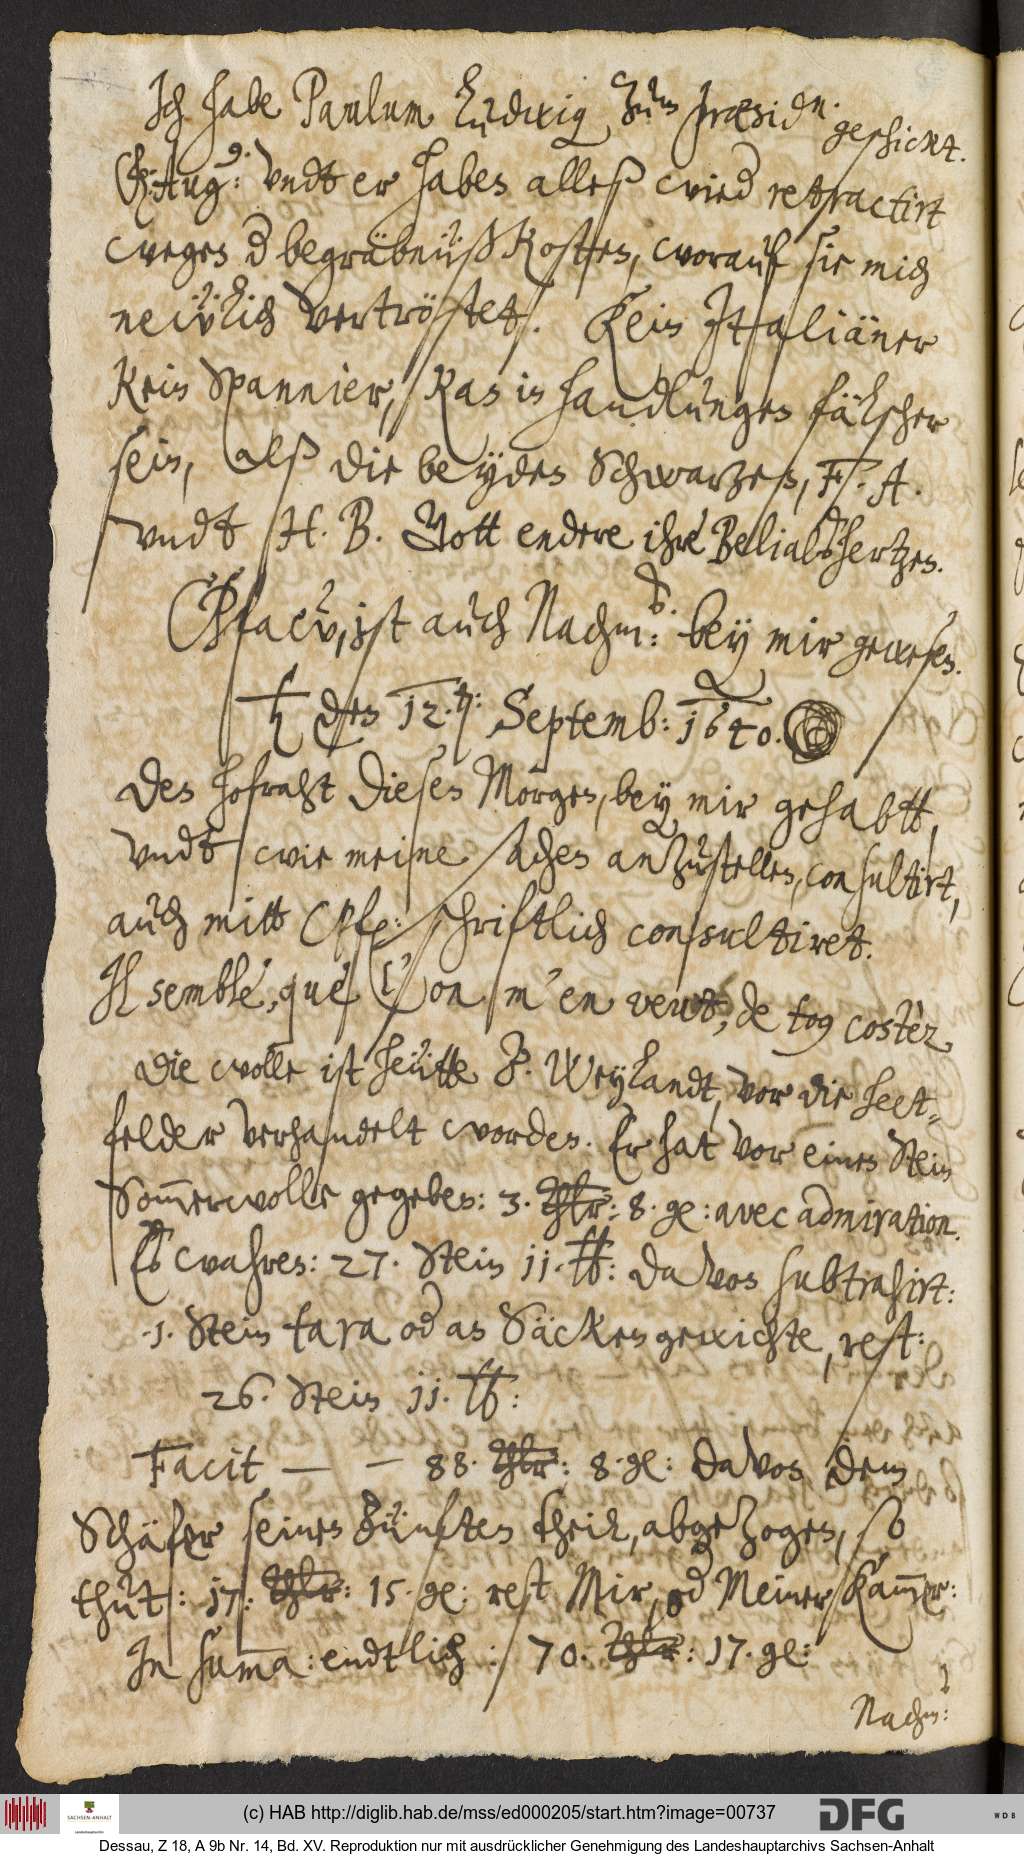 Ich habe Paulum Ludwig zum Præsidn. geschickt.
Hz: Aug: vndt er haben alleß wied retractirt
wegen d begräbnüß kosten, worauf sie mich
neẅlich vertröstet. Kein Italiäner
kein Spannier, kan in handlungen fälscher
sein, alß die beyden Schwarzen, F. A.
vndt H. B. Gott endere ihre Belialshertzen.
Pfaẅ, ist auch Nachm: bey mir gewesen.
♄ den 12.ten: Septemb: 1640.
Den hofraht diesen Morgen, bey mir gehabtt,
vndt wie meine sachen anzustellen, consultirt,
auch mitt CPf: schriftlich consultiret.
Il semble, que l'on m'en veut, de tous costèz
Die wolle ist heütte P. Weylandt, vor die heet-
felder verhandelt worden. Er hat vor einen Stein
Som̄erwolle gegeben: 3. Thlr: 8. gl: avec admiration.
Es wahren: 27. Stein 11. ℔: davon subtrahirt:
.1. Stein tara od an Säcken gewichte, rest:
26. Stein 11. ℔:
Facit — — 88. Thlr: 8. gl: davon dem
Schäfer seinen Fünften theil, abgezogen, so
thut: 17. Thlr: 15. gl: rest Mir, od Meiner Kam̄er:
In sum̄a: endtlich: 70. Thlr: 17. gl:
Nachm:
(c) HAB http://diglib.hab.de/mss/ed000205/start.htm?image=00737
SACHSEN-ANHALT
DFG
WDB
Dessau, Z 18, A 9b Nr. 14, Bd. XV. Reproduktion nur mit ausdrücklicher Genehmigung des Landeshauptarchivs Sachsen-Anhalt